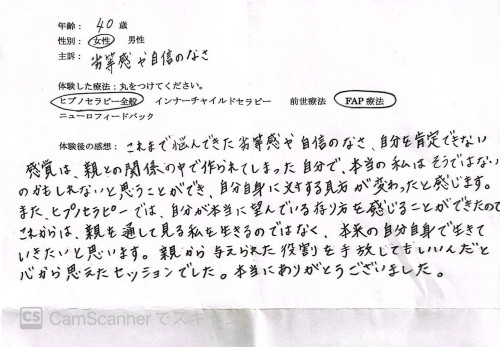 年齢： 40 歳
性別： 女性 男性
主訴： 劣等感や自信のなさ
体験した療法：丸をつけてください。
ヒプノセラピー全般 インナーチャイルドセラピー 前世療法 FAP療法
ニューロフィードバック
体験後の感想： これまで悩んできた劣等感や自信のなさ、自分を肯定できない
感覚は、親との関係の中で作られてしまった自分で、本当の私はそうではない
のかもしれないと思うことができ、自分自身に対する見方が変わったと感じます。
また、ヒプノセラピーでは、自分が本当に望んでいる在り方を感じることができたので
これからは、親を通して見る私を生きるのではなく、本来の自分自身で生きて
いきたいと思います。親から与えられた役割を手放してもいいんだと
心から思えたセッションでした。本当にありがとうございました。
CS CamScannerでスキ